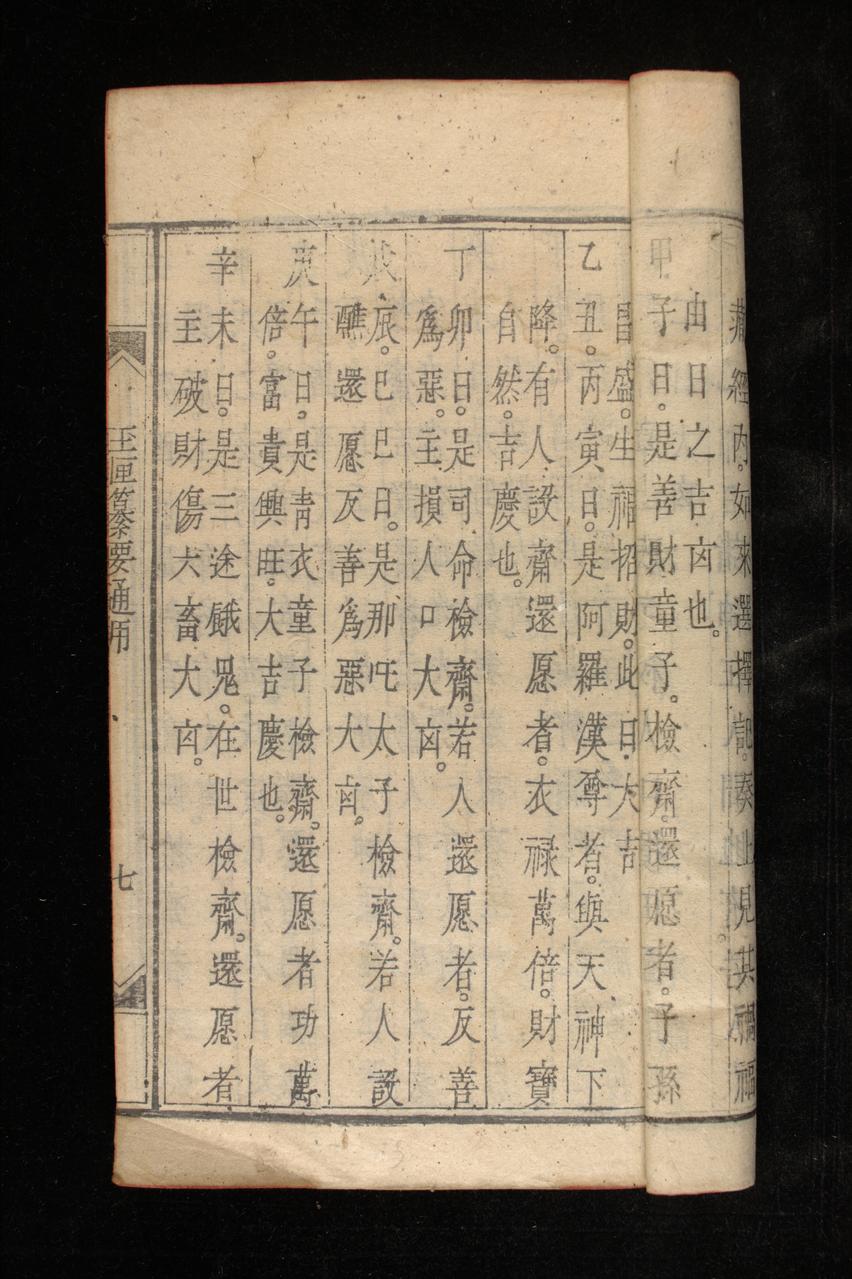 藏經内。如來選擇記。奏上見其禍福
由日之吉凶也。
甲子日。是善財童子。檢齋。還愿者。子孫
昌盛。生福招財。此日大吉
乙丑。丙寅日。是阿羅漢尊者。與天神下
降。有人設齋還愿者。衣禄萬倍。財寶
自然。吉慶也。
丁卯日。是司命檢齋。若人還愿者。反善
爲惡。主損人口大凶。
戊辰。巳巳日。是那吒太子檢齋。若人設
醮還愿反善爲惡大凶。
庚午日。是青衣童子檢齋。還愿者功萬
倍。富貴興旺。大吉慶也。
辛未日。是三途餓鬼。在世檢齋。還愿者
主破財傷犬畜大凶。
玉匣纂要通用
七